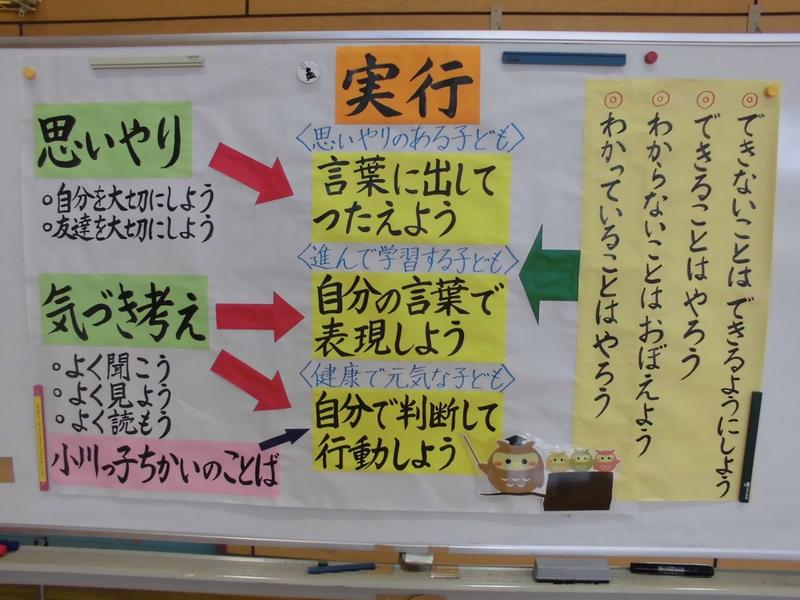 実行
思いやり
○自分を大切にしよう
○友達を大切にしよう
気づき考え
○よく聞こう
○よく見よう
○よく読もう
小川っ子ちかいのことば
〈思いやりのある子ども〉
言葉に出して
つたえよう
〈進んで学習する子ども〉
自分の言葉で
表現しよう
〈健康で元気な子ども〉
自分で判断して
行動しよう
◎できないことはできるようにしよう
◎できることはやろう
◎わからないことはおぼえよう
◎わかっていることはやろう